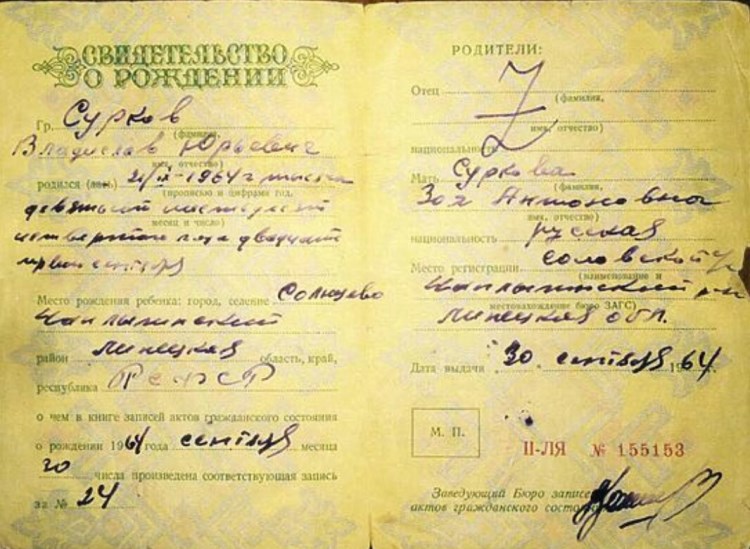 СВИДЕТЕЛЬСТВО
О РОЖДЕНИИ
Гр. Сурков
(фамилия,
Владислав Юрьевич
имя, отчество)
родился (лась) 21/IX-1964 г тысяча
(прописью и цифрами год,
девятьсот шестьдесят
месяц и число)
четвертого года двадцать
первого сентября
Место рождения ребенка: город, селение Солнцево
Чаплыгинский
район Липецкая область, край,
республика РСФСР
о чем в книге записей актов гражданского состояния
о рождении 1964 года сентября месяца
30 числа произведена соответствующая запись
за № 24
РОДИТЕЛИ:
Отец
(фамилия,
имя, отчество)
национальность
Мать Суркова
(фамилия,
Зоя Антоновна
имя, отчество)
национальность русская
Место регистрации Соловской
(наименование и
Чаплыгинский р-н
местонахождение бюро ЗАГС)
Липецкая обл.
Дата выдачи 30 сентября 1964
М. П.
II-ЛЯ № 155153
Заведующий Бюро записей
актов гражданского состояния